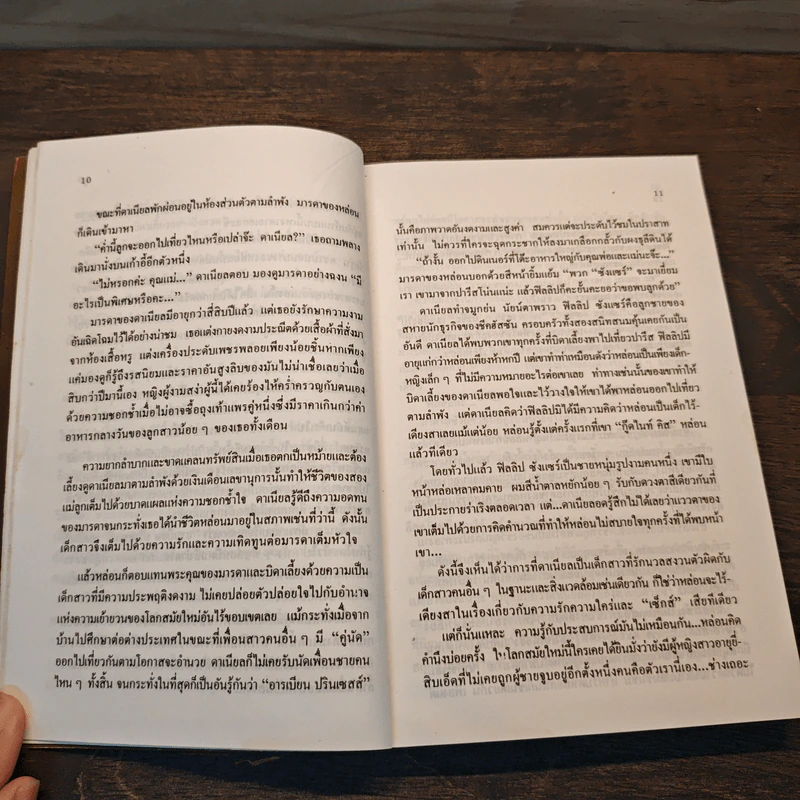 10
ขณะที่ดาเนียลพักผ่อนอยู่ในห้องส่วนตัวตามลำพัง มารดาของหล่อน
ก็เดินเข้ามาหา
“ค่ำนี้ลูกจะออกไปเที่ยวไหนหรือเปล่าจ๊ะ ดาเนียล?” เธอถามพลาง
เดินมานั่งบนเก้าอี้อีกตัวหนึ่ง
“ไม่หรอกค่ะ คุณแม่...” ดาเนียลตอบ มองดูมารดาอย่างฉงน “มี
อะไรเป็นพิเศษหรือคะ...”
มารดาของดาเนียลมีอายุกว่าสี่สิบปีแล้ว แต่เธอยังรักษาความงาม
อันเฉิดโฉมไว้ได้อย่างน่าชม เธอแต่งกายงดงามประณีตด้วยเสื้อผ้าที่สั่งมา
จากห้องเสื้อหรู แต่งเครื่องประดับเพชรพลอยเพียงน้อยชิ้นหากเพียง
แค่มองดูก็รู้ถึงรสนิยมและราคาอันสูงลิบของมันไม่น่าเชื่อเลยว่าเมื่อ
สิบกว่าปีมานี้เอง หญิงผู้งามสง่าผู้นี้ได้เคยร้องไห้คร่ำครวญกับตนเอง
ด้วยความชอกช้ำเมื่อไม่อาจซื้อถุงเท้าแพรคู่หนึ่งซึ่งมีราคาเกินกว่าค่า
อาหารกลางวันของลูกสาวน้อย ๆ ของเธอทั้งเดือน
ความยากลำบากและขาดแคลนทรัพย์สินเมื่อเธอตกเป็นหม้ายและต้อง
เลี้ยงดูดาเนียลมาตามลำพังด้วยเงินเดือนเลขานุการนั้นทำให้ชีวิตของสอง
แม่ลูกเต็มไปด้วยบาดแผลแห่งความชอกช้ำใจ ดาเนียลรู้ดีถึงความอดทน
ของมารดาจนกระทั่งเธอได้นำชีวิตหล่อนมาอยู่ในสภาพเช่นที่ว่านี้ ดังนั้น
เด็กสาวจึงเต็มไปด้วยความรักและความเทิดทูนต่อมารดาเต็มหัวใจ
แล้วหล่อนก็ตอบแทนพระคุณของมารดาและบิดาเลี้ยงด้วยความเป็น
เด็กสาวที่มีความประพฤติงดงาม ไม่เคยปล่อยตัวปล่อยใจไปกับอำนาจ
แห่งความเย้ายวนของโลกสมัยใหม่อันไร้ขอบเขตเลย แม้กระทั่งเมื่อจาก
บ้านไปศึกษาต่อต่างประเทศในขณะที่เพื่อนสาวคนอื่น ๆ มี “คู่นัด”
ออกไปเที่ยวกันตามโอกาสจะอำนวย ดาเนียลก็ไม่เคยรับนัดเพื่อนชายคน
ไหน ๆ ทั้งสิ้น จนกระทั่งในที่สุดก็เป็นอันรู้กันว่า “อาระเบียน ปรินเซสส์”
11
นั้นคือภาพวาดอันงดงามและสูงค่า สมควรแต่จะประดับไว้ชมในปราสาท
เท่านั้น ไม่ควรที่ใครจะฉุดกระชากให้ลงมาเกลือกกลั้วกับผงธุลีดินได้
“ถ้างั้น ออกไปดินเนอร์ที่โต๊ะอาหารใหญ่กับคุณพ่อและแม่นะจ๊ะ...”
มารดาของหล่อนบอกด้วยสีหน้ายิ้มแย้ม “พวก “ซังแซร์” จะมาเยี่ยม
เรา เขามาจากปารีสโน่นแน่ะ แล้วฟิลลิปก็คะยั้นคะยอว่าขอพบลูกด้วย”
ดาเนียลทำจมูกย่น นัยน์ตาพราว ฟิลลิป ซังแซร์คือลูกชายของ
สหายนักธุรกิจของชีคฮัสซัน ครอบครัวทั้งสองสนิทสนมคุ้นเคยกันเป็น
อันดี ดาเนียลได้พบพวกเขาทุกครั้งที่บิดาเลี้ยงพาไปเที่ยวปารีส ฟิลลิปมี
อายุแก่กว่าหล่อนเพียงห้าหกปี แต่เขาทำท่าเหมือนดังว่าหล่อนเป็นเพียงเด็ก-
หญิงเล็ก ๆ ที่ไม่มีความหมายอะไรต่อเขาเลย ท่าทางเช่นนั้นของเขาทำให้
บิดาเลี้ยงของดาเนียลพอใจและไว้วางใจให้เขาได้พาหล่อนออกไปเที่ยว
ตามลำพัง แต่ดาเนียลคิดว่าฟิลลิปมิได้มีความคิดว่าหล่อนเป็นเด็กไร้-
เดียงสาเลยแม้แต่น้อย หล่อนรู้ตั้งแต่ครั้งแรกที่เขา “กู๊ดไนท์ คิส” หล่อน
แล้วทีเดียว
โดยทั่วไปแล้ว ฟิลลิป ซังแซร์เป็นชายหนุ่มรูปงามคนหนึ่ง เขามีใบ
หน้าหล่อเหลาคมคาย ผมสีน้ำตาลหยักน้อย ๆ รับกับดวงตาสีเดียวกันที่
เป็นประกายร่าเริงตลอดเวลา แต่...ดาเนียลอดรู้สึกไม่ได้เลยว่าแววตาของ
เขาเต็มไปด้วยการคิดคำนวณที่ทำให้หล่อนไม่สบายใจทุกครั้งที่ได้พบหน้า
เขา...
ดังนี้จึงเห็นได้ว่าการที่ดาเนียลเป็นเด็กสาวที่รักนวลสงวนตัวผิดกับ
เด็กสาวคนอื่น ๆ ในฐานะและสิ่งแวดล้อมเช่นเดียวกัน ก็ใช่ว่าหล่อนจะไร้-
เดียงสาในเรื่องเกี่ยวกับความรักความใคร่และ “เซ็กส์” เสียทีเดียว
แต่ก็นั่นแหละ ความรู้กับประสบการณ์มันไม่เหมือนกัน...หล่อนคิด
คำนึงบ่อยครั้ง ในโลกสมัยใหม่นี้ใครเคยได้ยินมั่งว่ายังมีผู้หญิงสาวอายุยี่-
สิบเอ็ดที่ไม่เคยถูกผู้ชายจูบอยู่อีกตั้งหนึ่งคนคือตัวเรานี่เอง...ช่างเถอะ